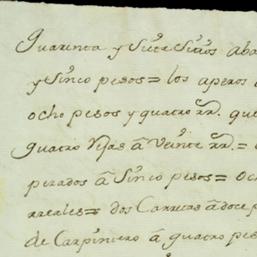 Quarenta y Siete Sitios aba
y Sinco pesos= los aperos
ocho pesos y quatro rr. que
quatro Rejas â Veinte rr.=
perados â Sinco pesos= oc
rreales= dos Carretas â doce p
de Carpintero â quatro pes